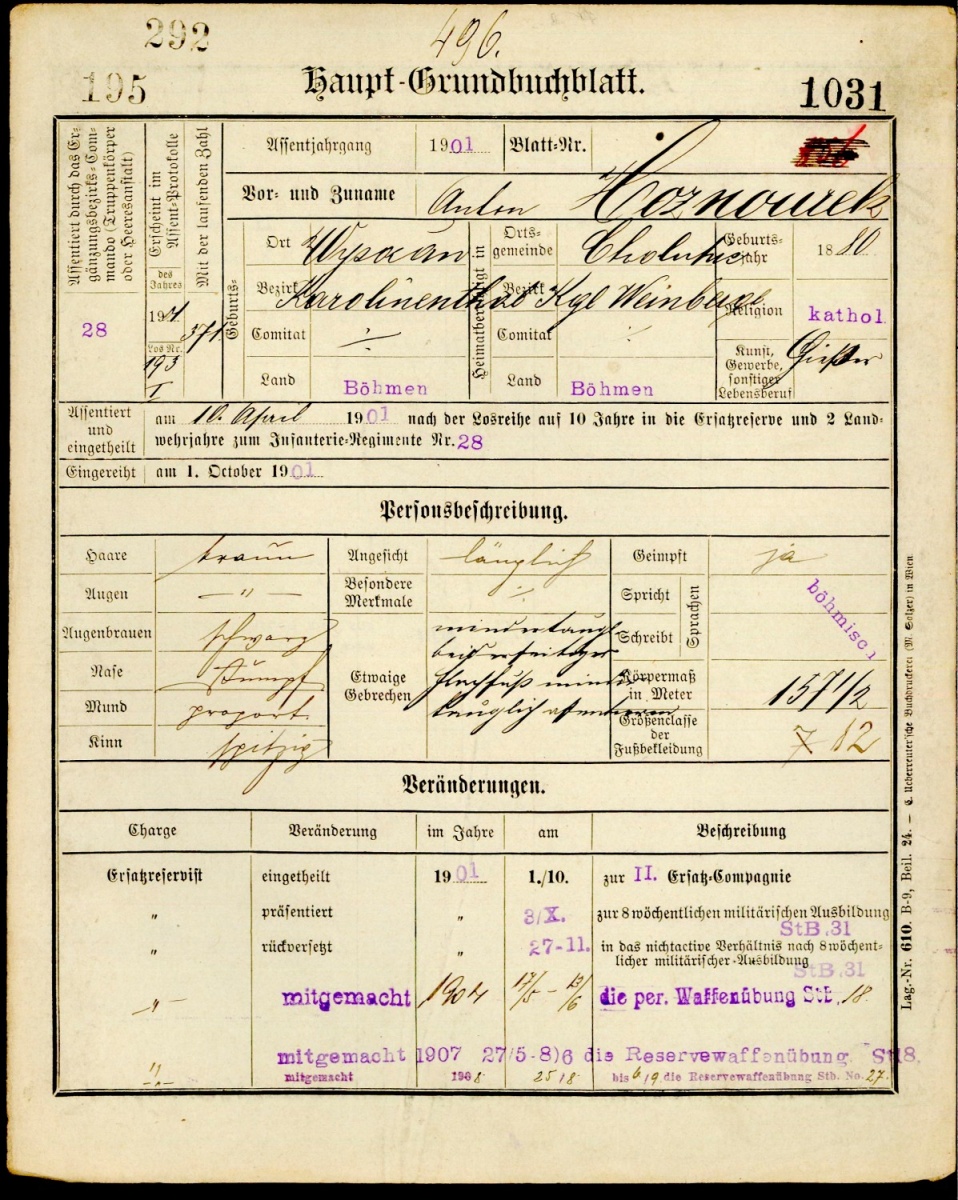 292
496.
195
Haupt-Grundbuchblatt.
1031
Assentiert durch das Er-
gänzungsbezirks-Com-
mando (Truppenkörper
oder Heeresanstalt)
28
Erscheint im
Assent-Protokolle
des
Jahres
Los Nr.
193
I
Mit der laufenden Zahl
371
Assentjahrgang 1901 Blatt-Nr.
Vor- und Zuname Anton Hoznourek
Geburts-
Ort
Bezirk Karolinenthal
Comitat ⁒
Land Böhmen
Heimatberechtigt in
Orts-
gemeinde
Bezirk Kgl Weinberge
Comitat ⁒
Land Böhmen
Geburts-
jahr 1880
Religion kathol.
Kunst,
Gewerbe,
sonstiger
Lebensberuf Gießer
Assentiert
und
eingetheilt
am 10. April 1901 nach der Losreihe auf 10 Jahre in die Ersatzreserve und 2 Land-
wehrjahre zum Infanterie-Regimente Nr. 28
Eingereiht am 1. October 1901
Personsbeschreibung.
Haare braun
Augen — " —
Augenbrauen schwarz
Nase stumpf
Mund proport.
Kinn spitzig
Angesicht länglich
Besondere
Merkmale ⁒
Etwaige
Gebrechen
mindertaugl
beiderseitiger
Plattfuß minder
tauglich
Geimpft ja
Spricht
Schreibt
Sprachen
böhmisch
Körpermaß
in Meter 157 1/2
Größenclasse
der
Fußbekleidung 7 12
Veränderungen.
Charge Veränderung im Jahre am Beschreibung
Ersatzreservist eingetheilt 1901 1./10. zur II. Ersatz-Compagnie
" präsentiert " 3/X. zur 8 wöchentlichen militärischen Ausbildung
StB.31
" rückversetzt " 27-11. in das nichtactive Verhältnis nach 8 wöchent-
licher militärischer Ausbildung
StB.31
-"- mitgemacht 1904 17/5 - 13/6 die per. Waffenübung StB. 18.
" mitgemacht 1907 27/5-8)6 die Reservewaffenübung. St18.
-"- mitgemacht 1908 25 18 bis 6/9. die Reservewaffenübung Stb. No. 27.
Lag.-Nr. 610. B-9, Beil. 24. — C. Ueberreuter'sche Buchdruckerei (M. Salzer) in Wien.